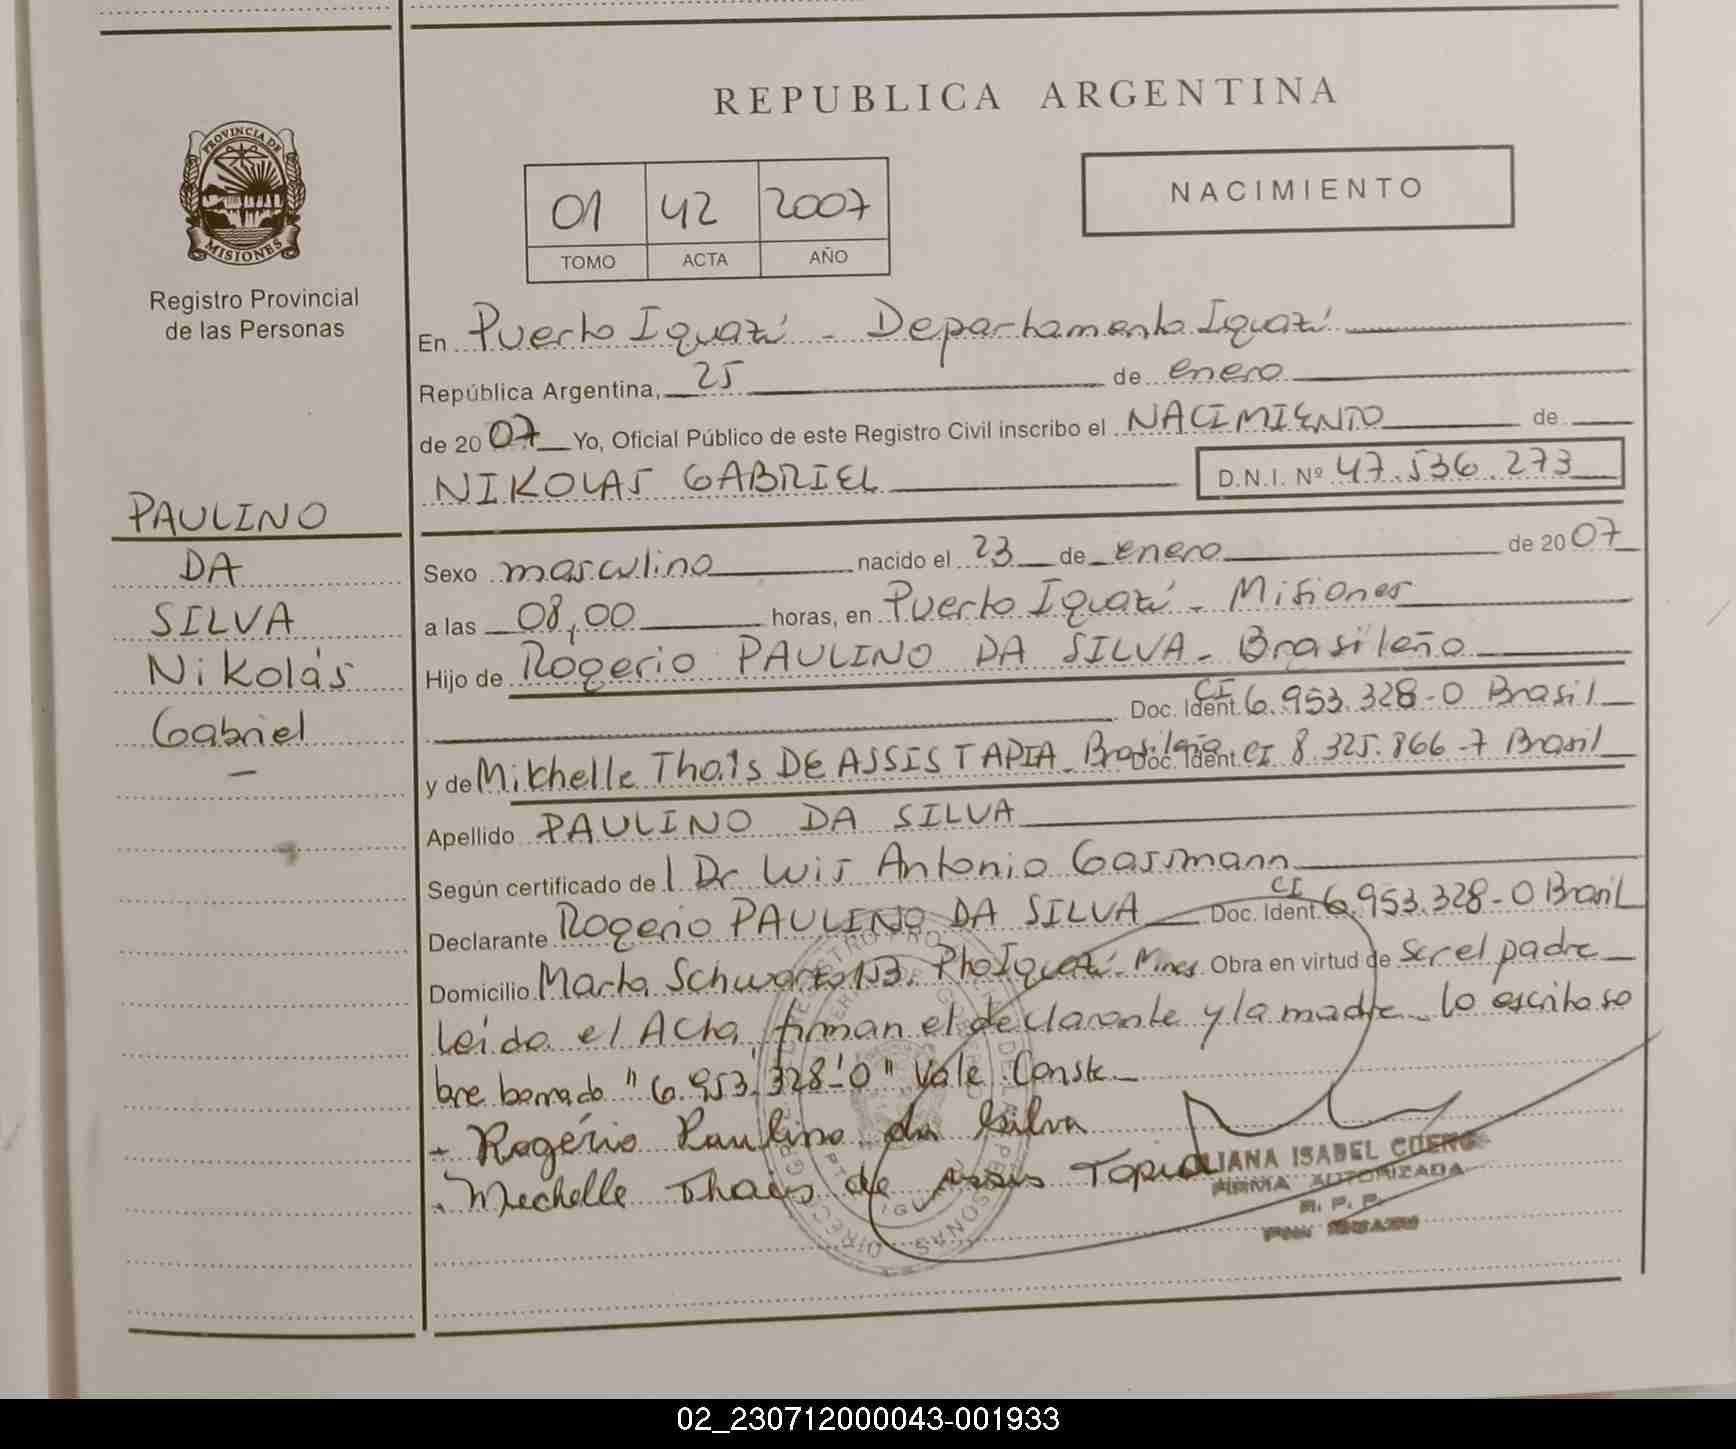 REPUBLICA ARGENTINA
PROVINCIA DE
MISIONES
Registro Provincial
de las Personas
NACIMIENTO
01 42 2007
TOMO ACTA AÑO
En Puerto Iguazú - Departamento Iguazú
República Argentina, 25 de enero
de 2007 Yo, Oficial Público de este Registro Civil inscribo el NACIMIENTO de
NIKOLAS GABRIEL D.N.I. Nº 47.536.273
PAULINO
DA
SILVA
Nikolás
Gabriel
Sexo masculino nacido el 23 de enero de 2007
a las 08,00 horas, en Puerto Iguazú - Misiones
Hijo de Rogerio PAULINO DA SILVA - Brasileño
Doc. Ident. CI 6.953.328-0 Brasil
y de Mikhelle Thais DE ASSIS TAPIA - Brasileña Doc. Ident. CI 8.325.866-7 Brasil
Apellido PAULINO DA SILVA
Según certificado del Dr Luis Antonio Gassmann
Declarante Rogerio PAULINO DA SILVA Doc. Ident. CI 6.953.328-0 Brasil
Domicilio Marta Schwarz Pto Iguazú - Mnes Obra en virtud de ser el padre
leída el Acta, firman el declarante y la madre - lo escrito so
bre borrado "6.953.328-0" Vale. Conste -
- Rogério Paulino da Silva
. Mechelle Thais de Assis Tapia
LIANA ISABEL CUENO
FIRMA AUTORIZADA
R. P. P.
02_230712000043-001933